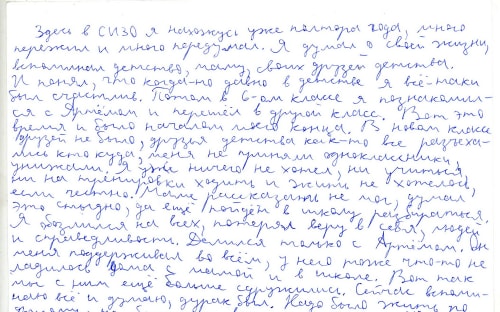 Здесь в СИЗО я нахожусь уже полтора года, много
пережил и много передумал. Я думал о своей жизни,
вспоминал детство, маму, своих друзей детства.
И понял, что когда-то давно в детстве я всё-таки
был счастлив. Потом в 6-ом классе я познакомил-
ся с Артёмом и перешёл в другой класс. Вот это
время и было началом моего конца. В новом классе
друзей не было, друзья детства как-то все разъеха-
лись кто куда, меня не приняли одноклассники,
унижали. Я уже ничего не хотел, ни учиться,
ни на тренировки ходить и жить не хотелось,
если честно. Маме рассказать не мог, думал
это стыдно, да ещё пойдёт в школу разбираться.
Я обозлился на всех, потерял веру в себя, людей
и справедливости. Делился только с Артёмом. Он
меня поддерживал во всём, у него тоже что-то не
ладилось дома с мамой и в школе. Вот так
мы с ним ещё больше сдружились. Сейчас вспоми-
наю всё и думаю, дурак был. Надо было жить по